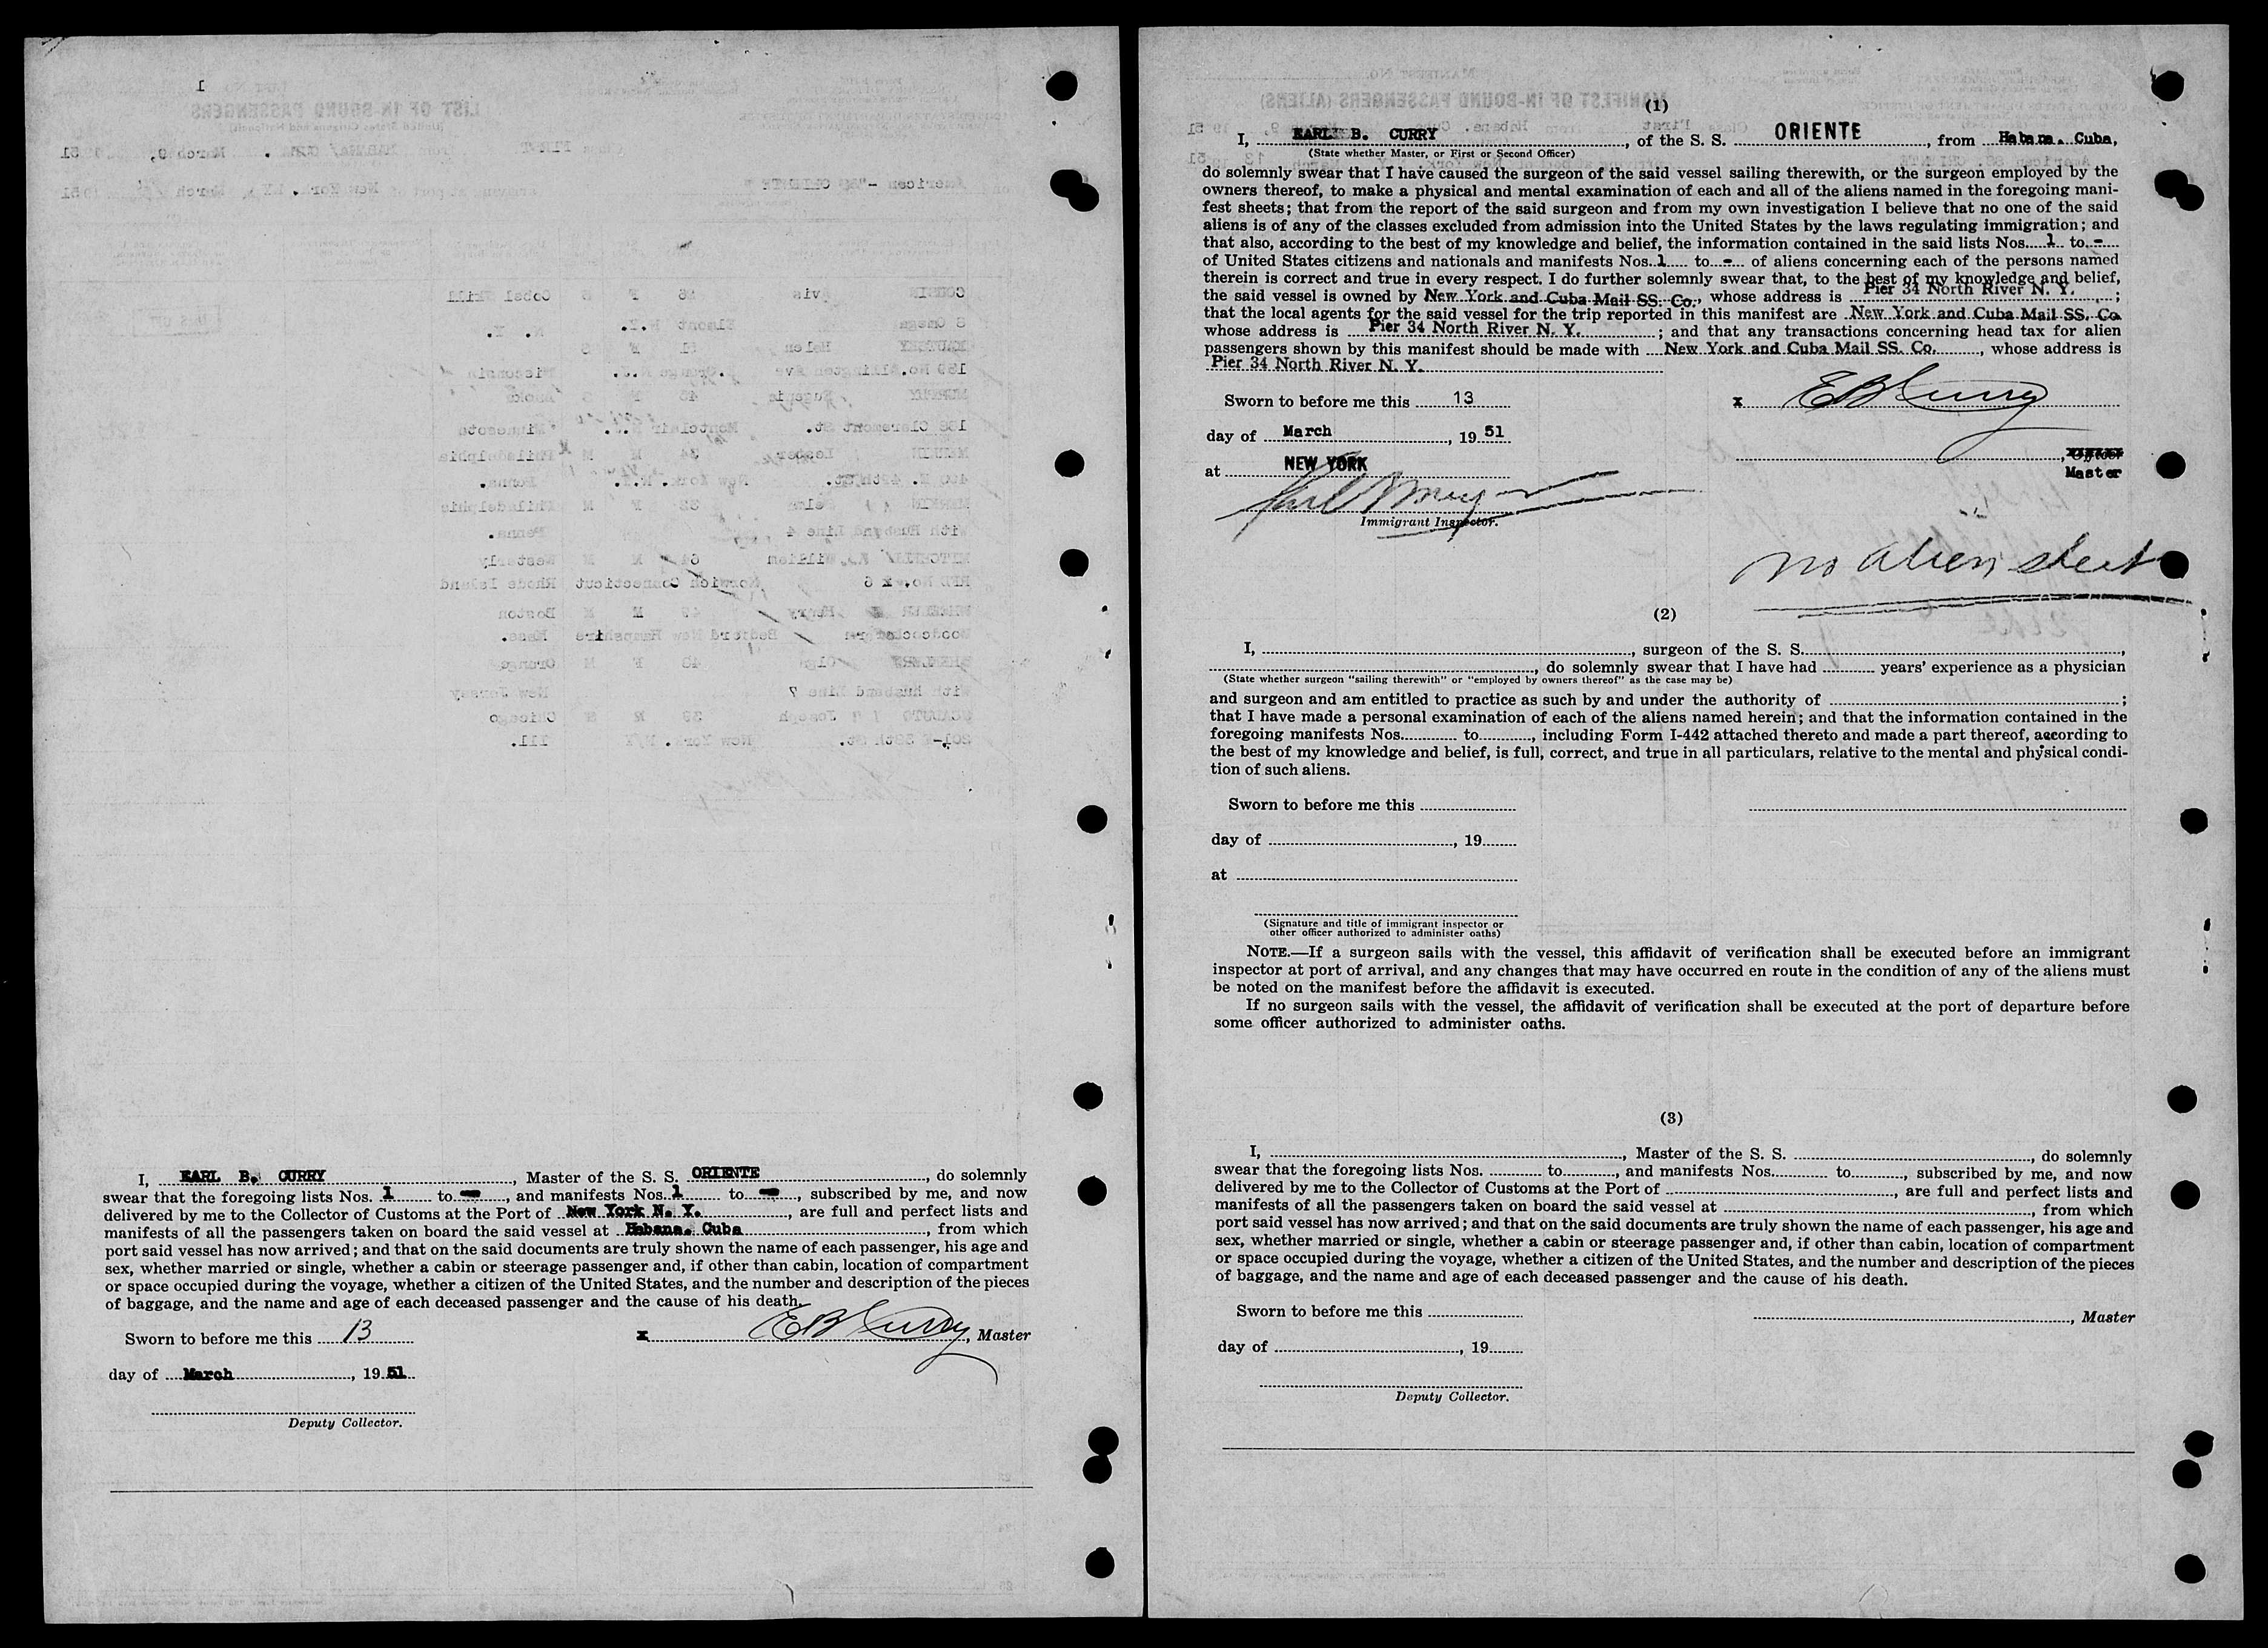 1
I, EARL B. CURRY, Master of the S. S. ORIENTE, do solemnly
swear that the foregoing lists Nos. 1 to -, and manifests Nos. 1 to -, subscribed by me, and now
delivered by me to the Collector of Customs at the Port of New York N. Y., are full and perfect lists and
manifests of all the passengers taken on board the said vessel at Habana. Cuba, from which
port said vessel has now arrived; and that on the said documents are truly shown the name of each passenger, his age and
sex, whether married or single, whether a cabin or steerage passenger and, if other than cabin, location of compartment
or space occupied during the voyage, whether a citizen of the United States, and the number and description of the pieces
of baggage, and the name and age of each deceased passenger and the cause of his death.
Sworn to before me this 13
x E B Curry, Master
day of March, 19 51
Deputy Collector.
(1)
I, EARL B. CURRY, of the S. S. ORIENTE, from Habana. Cuba,
(State whether Master, or First or Second Officer)
do solemnly swear that I have caused the surgeon of the said vessel sailing therewith, or the surgeon employed by the
owners thereof, to make a physical and mental examination of each and all of the aliens named in the foregoing mani-
fest sheets; that from the report of the said surgeon and from my own investigation I believe that no one of the said
aliens is of any of the classes excluded from admission into the United States by the laws regulating immigration; and
that also, according to the best of my knowledge and belief, the information contained in the said lists Nos. 1 to -
of United States citizens and nationals and manifests Nos. 1 to - of aliens concerning each of the persons named
therein is correct and true in every respect. I do further solemnly swear that, to the best of my knowledge and belief,
the said vessel is owned by New York and Cuba Mail SS. Co., whose address is Pier 34 North River N. Y.;
that the local agents for the said vessel for the trip reported in this manifest are New York and Cuba Mail SS. Co
whose address is Pier 34 North River N. Y.; and that any transactions concerning head tax for alien
passengers shown by this manifest should be made with New York and Cuba Mail SS. Co., whose address is
Pier 34 North River N. Y.
Sworn to before me this 13
x E B Curry
day of March, 19 51
, Officer
Master
at NEW YORK
Immigrant Inspector.
no alien sheet
(2)
I, , surgeon of the S. S. ,
, do solemnly swear that I have had years' experience as a physician
(State whether surgeon "sailing therewith" or "employed by owners thereof" as the case may be)
and surgeon and am entitled to practice as such by and under the authority of ;
that I have made a personal examination of each of the aliens named herein; and that the information contained in the
foregoing manifests Nos. to , including Form I-442 attached thereto and made a part thereof, according to
the best of my knowledge and belief, is full, correct, and true in all particulars, relative to the mental and physical condi-
tion of such aliens.
Sworn to before me this
day of , 19
at
(Signature and title of immigrant inspector or
other officer authorized to administer oaths)
NOTE.—If a surgeon sails with the vessel, this affidavit of verification shall be executed before an immigrant
inspector at port of arrival, and any changes that may have occurred en route in the condition of any of the aliens must
be noted on the manifest before the affidavit is executed.
If no surgeon sails with the vessel, the affidavit of verification shall be executed at the port of departure before
some officer authorized to administer oaths.
(3)
I, , Master of the S. S. , do solemnly
swear that the foregoing lists Nos. to , and manifests Nos. to , subscribed by me, and now
delivered by me to the Collector of Customs at the Port of , are full and perfect lists and
manifests of all the passengers taken on board the said vessel at , from which
port said vessel has now arrived; and that on the said documents are truly shown the name of each passenger, his age and
sex, whether married or single, whether a cabin or steerage passenger and, if other than cabin, location of compartment
or space occupied during the voyage, whether a citizen of the United States, and the number and description of the pieces
of baggage, and the name and age of each deceased passenger and the cause of his death.
Sworn to before me this
, Master
day of , 19
Deputy Collector.